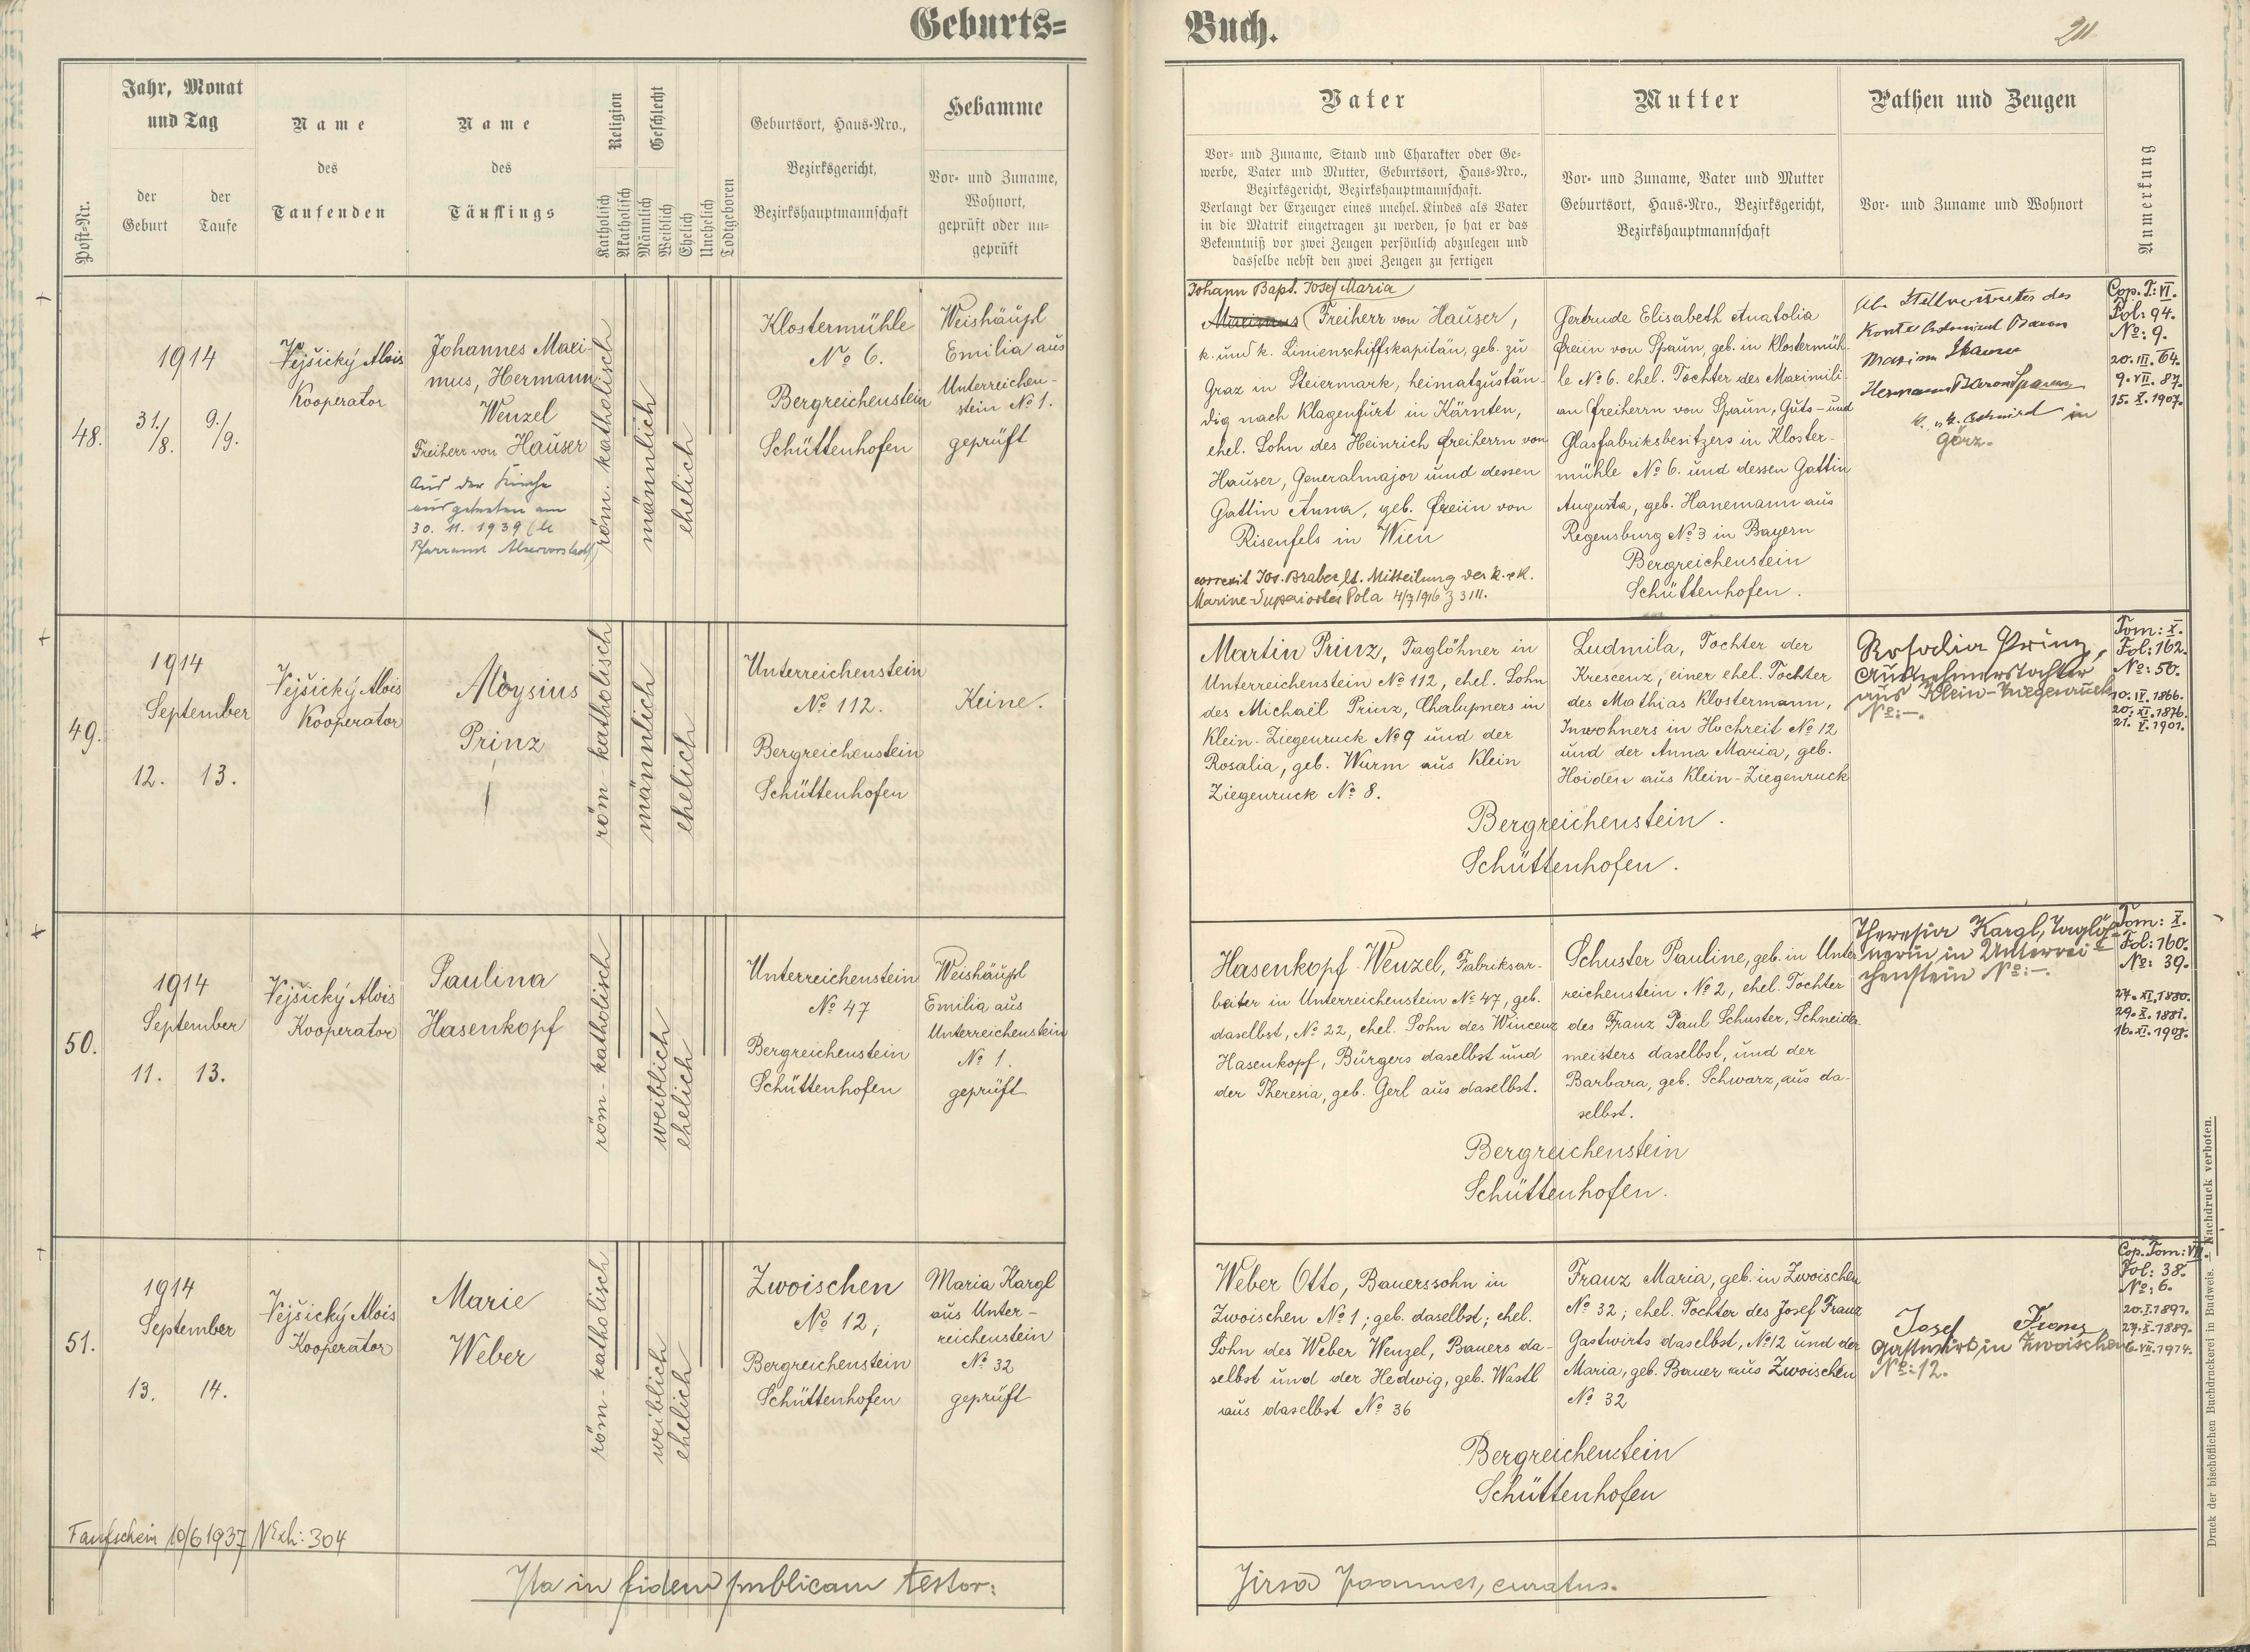 Geburts=
Buch.
211
Jahr, Monat
und Tag
der
Geburt
der
Taufe
Post=Nr.
Name
des
Taufenden
Name
des
Täuflings
Religion
Katholisch
Akatholisch
Geschlecht
Männlich
Weiblich
Ehelich
Unehelich
Todtgeboren
Geburtsort, Haus=Nro.,
Bezirksgericht,
Bezirkshauptmannschaft
Hebamme
Vor= und Zuname,
Wohnort,
geprüft oder un=
geprüft
Vater
Vor= und Zuname, Stand und Charakter oder Ge=
werbe, Vater und Mutter, Geburtsort, Haus=Nro.,
Bezirksgericht, Bezirkshauptmannschaft.
Verlangt der Erzeuger eines unehel. Kindes als Vater
in die Matrik eingetragen zu werden, so hat er das
Bekenntniß vor zwei Zeugen persönlich abzulegen und
dasselbe nebst den zwei Zeugen zu fertigen
Mutter
Vor= und Zuname, Vater und Mutter
Geburtsort, Haus=Nro., Bezirksgericht,
Bezirkshauptmannschaft
Pathen und Zeugen
Vor= und Zuname und Wohnort
Anmerkung
48.
1914
31./8.
9./9.
Vejšický Alois
Kooperator
Johannes Maxi-
mus, Hermann
Wenzel
Freiherr von Hauser
Aus der Kirche
ausgetreten am
30. 11. 1939 (lt
Pfarramt Alservorstadt)
röm. katholisch
männlich
ehelich
Klostermühle
No 6.
Bergreichenstein
Schüttenhofen
Weishäupl
Emilia aus
Unterreichen-
stein No 1.
geprüft
Johann Bapt. Josef Maria
Maximus Freiherr von Hauser,
k. und k. Linienschiffskapitän, geb. zu
Graz in Steiermark, heimatzustän-
dig nach Klagenfurt in Kärnten,
ehel. Sohn des Heinrich Freiherrn von
Hauser, Generalmajor und dessen
Gattin Anna, geb. Freiin von
Risenfels in Wien
correxit Jos. Braber lt. Mitteilung der k. u k.
Marine-Superiortes Pola 4/7 1916 Z 3111.
Gertrude Elisabeth Anatolia
Freiin von Spaun, geb. in Klostermüh-
le No 6. ehel. Tochter des Maximili-
an Freiherrn von Spaun, Guts- und
Glasfabriksbesitzers in Kloster-
mühle No 6. und dessen Gattin
Augusta, geb. Hanemann aus
Regensburg No 3 in Bayern
Bergreichenstein
Schüttenhofen.
als Stellvertreter des
Kontreadmiral Baron
Maxim Hauser
Hermann Baron Spaun
k. u. k. Admiral in
Görz.
Cop. T: VI.
Fol: 94.
No: 9.
20. III. 64.
9. VII. 87.
15. X. 1907.
49.
1914
September
12.
13.
Vejšický Alois
Kooperator
Aloysius
Prinz
röm - katholisch
männlich
ehelich
Unterreichenstein
No 112.
Bergreichenstein
Schüttenhofen
Keine.
Martin Prinz, Taglöhner in
Unterreichenstein No 112, ehel. Sohn
des Michaël Prinz, Chalupners in
Klein-Ziegenruck No 9 und der
Rosalia, geb. Wurm aus Klein
Ziegenruck No 8.
Ludmila, Tochter der
Krescenz, einer ehel. Tochter
des Mathias Klostermann,
Inwohners in Hochreit No 12
und der Anna Maria, geb.
Hoiden aus Klein-Ziegenruck
Bergreichenstein.
Schüttenhofen.
Rosalia Prinz,
Ausnehmerstochter
aus Klein-Ziegenruck
No:-.
Tom: X.
Fol: 162.
No: 50.
10. IV. 1866.
20. XI. 1876.
21. X. 1901.
50.
1914
September
11.
13.
Vejšický Alois
Kooperator
Paulina
Hasenkopf
röm - katholisch
weiblich
ehelich
Unterreichenstein
No 47
Bergreichenstein
Schüttenhofen
Weishäupl
Emilia aus
Unterreichenstein
No 1.
geprüft
Hasenkopf Wenzel, Fabriksar-
beiter in Unterreichenstein No 47, geb.
daselbst, No 22, ehel. Sohn des Wincenz
Hasenkopf, Bürgers daselbst und
der Theresia, geb. Gerl aus daselbst.
Schuster Pauline, geb. in Unter-
reichenstein No 2, ehel. Tochter
des Franz Paul Schuster, Schneider-
meisters daselbst, und der
Barbara, geb. Schwarz, aus da-
selbst.
Bergreichenstein
Schüttenhofen.
Theresia Kargl, Taglöh-
nerin in Unterrei-
chenstein No:-.
Tom: X.
Fol: 160.
No: 39.
27. XI. 1880.
29. X. 1881.
16. XI. 1908.
51.
1914
September
13.
14.
Vejšický Alois
Kooperator
Marie
Weber
röm - katholisch
weiblich
ehelich
Zwoischen
No 12,
Bergreichenstein
Schüttenhofen
Maria Kargl
aus Unter-
reichenstein
No 32
geprüft
Weber Otto, Bauerssohn in
Zwoischen No 1; geb. daselbst; ehel.
Sohn des Weber Wenzel, Bauers da-
selbst und der Hedwig, geb. Wastl
aus daselbst No 36
Franz Maria, geb. in Zwoischen
No 32; ehel. Tochter des Josef Franz
Gastwirts daselbst, No 12 und der
Maria, geb. Bauer aus Zwoischen
No 32
Bergreichenstein
Schüttenhofen
Josef Franz
Gastwirt in Zwoischen
No: 12.
Cop. Tom: VII.
Fol: 38.
No: 6.
20. I. 1891.
27. X. 1889.
6. VII. 1914.
Taufschein 10/6 1937 N Exh: 304
Ita in fidem publicam testor:
Jirsa Joannes, curatus.
Druck der bischöflichen Buchdruckerei in Budweis. — Nachdruck verboten.